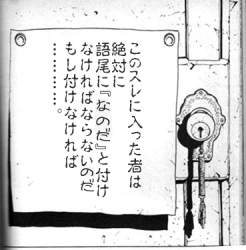 このスレに入った者は
絶対に
語尾に『なのだ』と付け
なければならないのだ
もし付けなければ
…………。